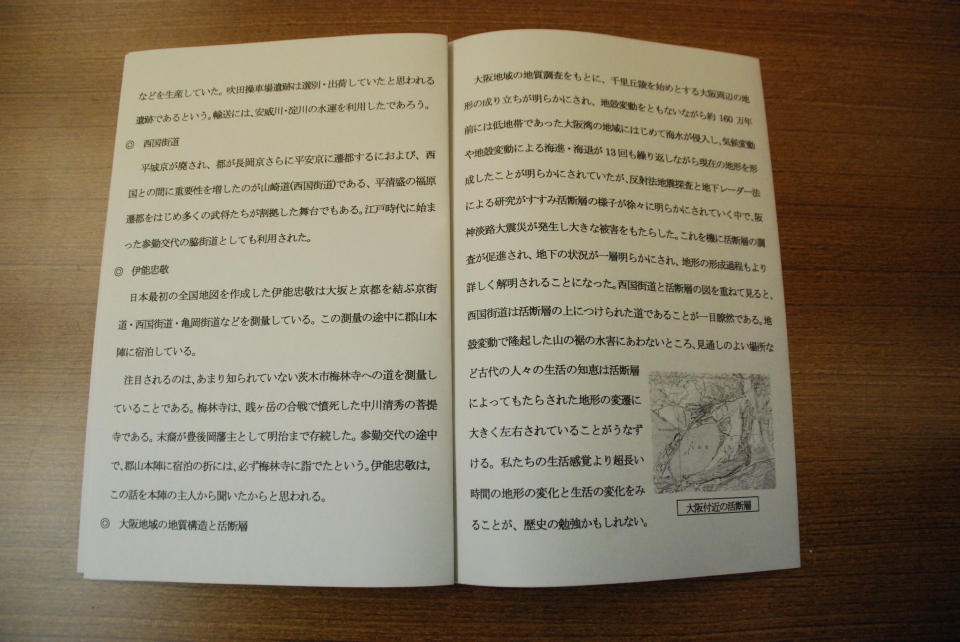 などを生産していた。吹田操車場遺跡は選別・出荷していたと思われる
遺跡であるという。輸送には、安威川・淀川の水運を利用したであろう。
◎ 西国街道
平城京が廃され、都が長岡京さらに平安京に遷都するにおよび、西
国との間に重要性を増したのが山崎道(西国街道)である、平清盛の福原
遷都をはじめ多くの武将たちが割拠した舞台でもある。江戸時代に始ま
った参勤交代の脇街道としても利用された。
◎ 伊能忠敬
日本最初の全国地図を作成した伊能忠敬は大坂と京都を結ぶ京街
道・西国街道・亀岡街道などを測量している。この測量の途中に郡山本
陣に宿泊している。
注目されるのは、あまり知られていない茨木市梅林寺への道を測量し
ていることである。梅林寺は、賤ヶ岳の合戦で憤死した中川清秀の菩提
寺である。末裔が豊後岡藩主として明治まで存続した。参勤交代の途中
で、郡山本陣に宿泊の折には、必ず梅林寺に詣でたという。伊能忠敬は，
この話を本陣の主人から聞いたからと思われる。
◎ 大阪地域の地質構造と活断層
大阪地域の地質調査をもとに、千里丘陵を始めとする大阪周辺の地
形の成り立ちが明らかにされ、地殻変動をともないながら約 160 万年
前には低地帯であった大阪湾の地域にはじめて海水が侵入し、気候変動
や地殻変動による海進・海退が 13 回も繰り返しながら現在の地形を形
成したことが明らかにされていたが、反射法地震探査と地下レーダー法
による研究がすすみ活断層の様子が徐々に明らかにされていく中で、阪
神淡路大震災が発生し大きな被害をもたらした。これを機に活断層の調
査が促進され、地下の状況が一層明らかにされ、地形の形成過程もより
詳しく解明されることになった。西国街道と活断層の図を重ねて見ると、
西国街道は活断層の上につけられた道であることが一目瞭然である。地
殻変動で隆起した山の裾の水害にあわないところ、見通しのよい場所な
ど古代の人々の生活の知恵は活断層
によってもたらされた地形の変遷に
大きく左右されていることがうなず
ける。私たちの生活感覚より超長い
時間の地形の変化と生活の変化をみ
ることが、歴史の勉強かもしれない。
大阪付近の活断層